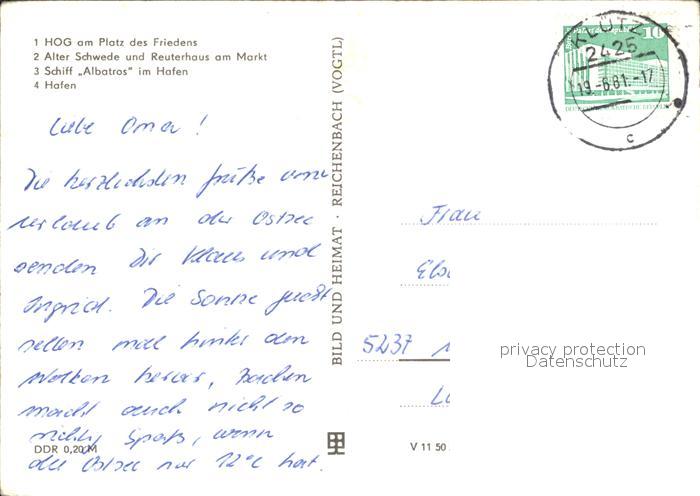 1 HOG am Platz des Friedens
2 Alter Schwede und Reuterhaus am Markt
3 Schiff „Albatros“ im Hafen
4 Hafen
Liebe Oma!
Die herzlichsten Grüße vom
Urlaub an der Ostsee
senden Dir Klaus und
Ingrid. Die Sonne guckt
selten mal hinter den
Wolken hervor, Baden
macht auch nicht so
richtig Spaß, wenn
die Ostsee nur 12°C hat.
DDR 0,20 M
BILD UND HEIMAT · REICHENBACH (VOGTL)
V 11 50
KLÜTZ
2425
19.-6.81.-17
c
10
Frau
5237
privacy protection
Datenschutz